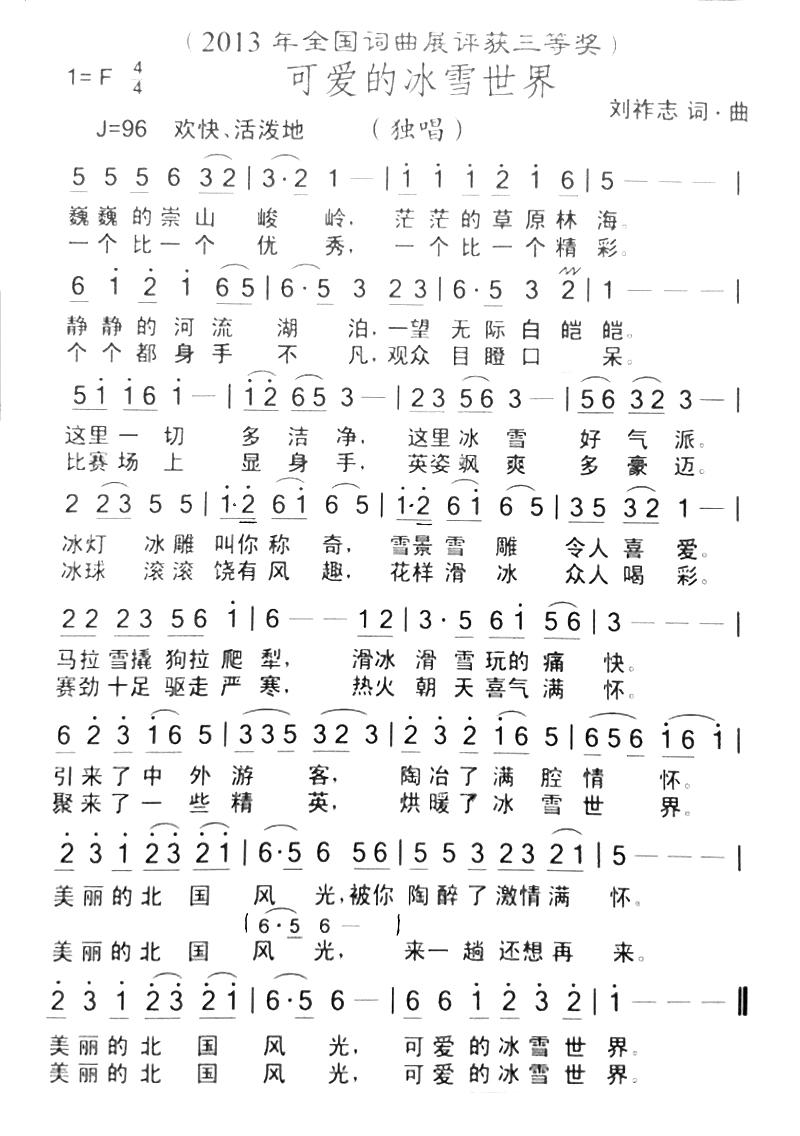 （2013年全国词曲展评获三等奖）
1=F 4/4 可爱的冰雪世界
刘祚志 词·曲
J=96 欢快、活泼地 （独唱）
5 5 5 6 3 2 | 3·2 1 — | i i i 2̇ i 6 | 5 — — — |
巍巍的崇山 峻 岭， 茫茫的草原林海。
一个比一个 优 秀， 一个比一个精彩。
6 i 2̇ i 6 5 | 6·5 3 2 3 | 6·5 3 2 | 1 — — — |
静静的河流 湖 泊，一望 无际白皑皑。
个个都身手 不 凡，观众 目瞪口 呆。
5 i i 6 i — | i 2̇ 6 5 3 — | 2 3 5 6 3 — | 5 6 3 2 3 — |
这里一切 多洁净， 这里冰雪 好气派。
比赛场上 显身手， 英姿飒爽 多豪迈。
2 2 3 5 5 | i·2̇ 6 i 6 5 | i·2̇ 6 i 6 5 | 3 5 3 2 1 — |
冰灯 冰雕 叫你称 奇， 雪景雪 雕 令人喜 爱。
冰球 滚滚 饶有风 趣， 花样滑 冰 众人喝 彩。
2 2 2 3 5 6 i | 6 — — 1 2 | 3·5 6 i 5 6 | 3 — — — |
马拉雪撬 狗拉爬 犁， 滑冰 滑雪玩的痛 快。
赛劲十足 驱走严 寒， 热火 朝天喜气满 怀。
6 2̇ 3̇ i 6 5 | 3 3 5 3 2 3 | 2̇ 3̇ 2̇ i 6 5 | 6 5 6 i 6 i |
引来了中 外游 客， 陶冶了满 腔情 怀。
聚来了一 些精 英， 烘暖了冰 雪世 界。
2̇ 3̇ i 2̇ 3̇ 2̇ i | 6·5 6 5 6 | 5 5 5 2 3 2 1 | 5 — — — |
美丽的北 国 风 光，被你 陶醉了激情满 怀。
( 6·5 6 — )
美丽的北 国 风 光， 来一趟还想再 来。
2̇ 3̇ i 2̇ 3̇ 2̇ i | 6·5 6 — | 6 6 i 2̇ 3̇ 2̇ | i — — ‖
美丽的北 国 风 光， 可爱的冰雪世 界。
美丽的北 国 风 光， 可爱的冰雪世 界。